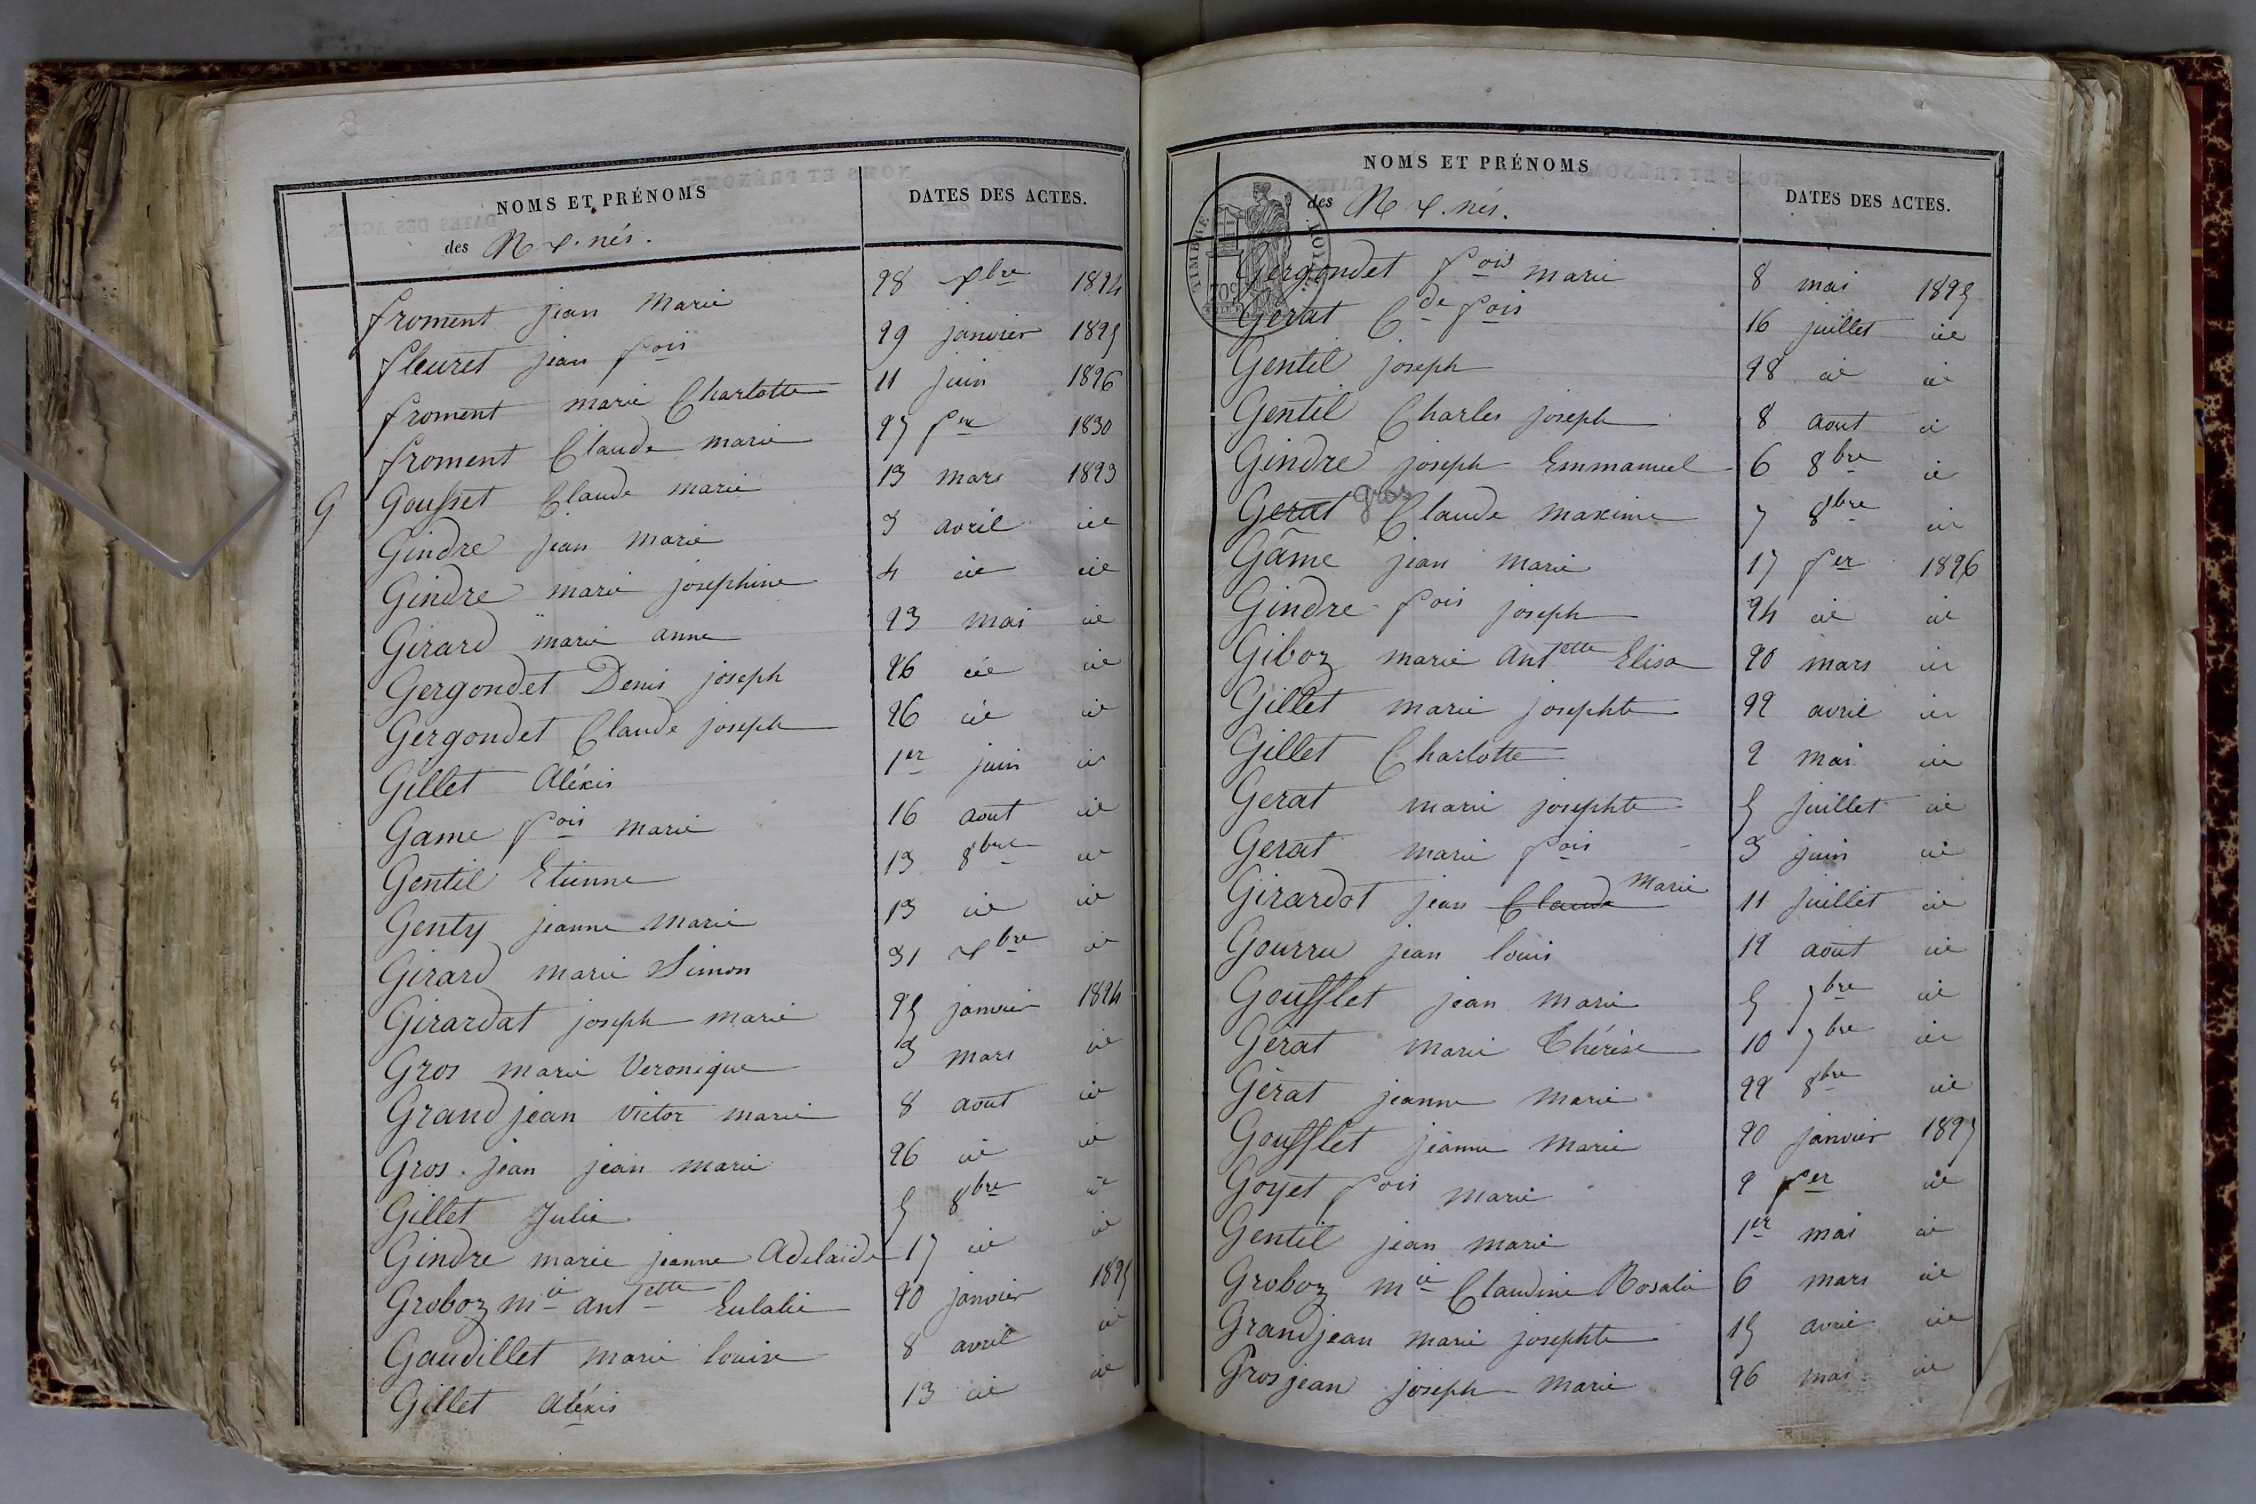 NOMS ET PRÉNOMS
des N x. nés.
DATES DES ACTES.
froment jean Marie 28 xbre 1824
fleuret jean fois 29 janvier 1825
froment marie Charlotte 11 juin 1826
froment Claude marie 27 fer 1830
G Gousset Claude marie 13 mars 1823
Gindre jean marie 3 avril id
Gindre marie josephine 4 id id
Girard marie anne 23 mai id
Gergondet Denis joseph 26 id id
Gergondet Claude joseph 26 id id
Gillet Aléxis 1er juin id
Game fois marie 16 aout id
Gentil Etienne 13 8bre id
Genty jeanne marie 13 id id
Girard marie Simon 31 xbre id
Girardat joseph marie 25 janvier 1824
Gros marie Veronique 3 mars id
Grand jean victor marie 8 aout id
Gros. jean jean marie 26 id id
Gillet Julie 5 8bre id
Gindre marie jeanne Adelaïde 17 id id
Groboz mie antette Eulalie 20 janvier 1825
Gaudillet marie louise 8 avril id
Gillet aléxis 13 id id
NOMS ET PRÉNOMS
des N x. nés.
DATES DES ACTES.
TIMBRE
Gergondet fois marie 8 mai 1825
Gerat Cde fois 16 juillet id
Gentil joseph 28 id id
Gentil Charles joseph 8 aout id
Gindre joseph Emmanuel 6 8bre id
Gerat gros Claude maxime 7 8bre id
Gâme jean marie 17 fer 1826
Gindre fois joseph 24 id id
Giboz marie antette Elisa 20 mars id
Gillet marie josephte 22 avril id
Gillet Charlotte 2 mai id
Gerat marie josephte 5 juillet id
Gerat marie fois 3 juin id
Girardot jean Claude Marie 11 juillet id
Gourru jean louis 12 aout id
Goufflet jean marie 5 7bre id
Gérat marie Thérèse 10 7bre id
Gérat jeanne marie 22 8bre id
Goufflet jeanne marie 20 janvier 1827
Goyet fois marie 2 fer id
Gentil jean marie 1er mai id
Groboz mie Claudine Rosalie 6 mars id
Grandjean marie josephte 15 avril id
Grosjean joseph marie 26 mai id